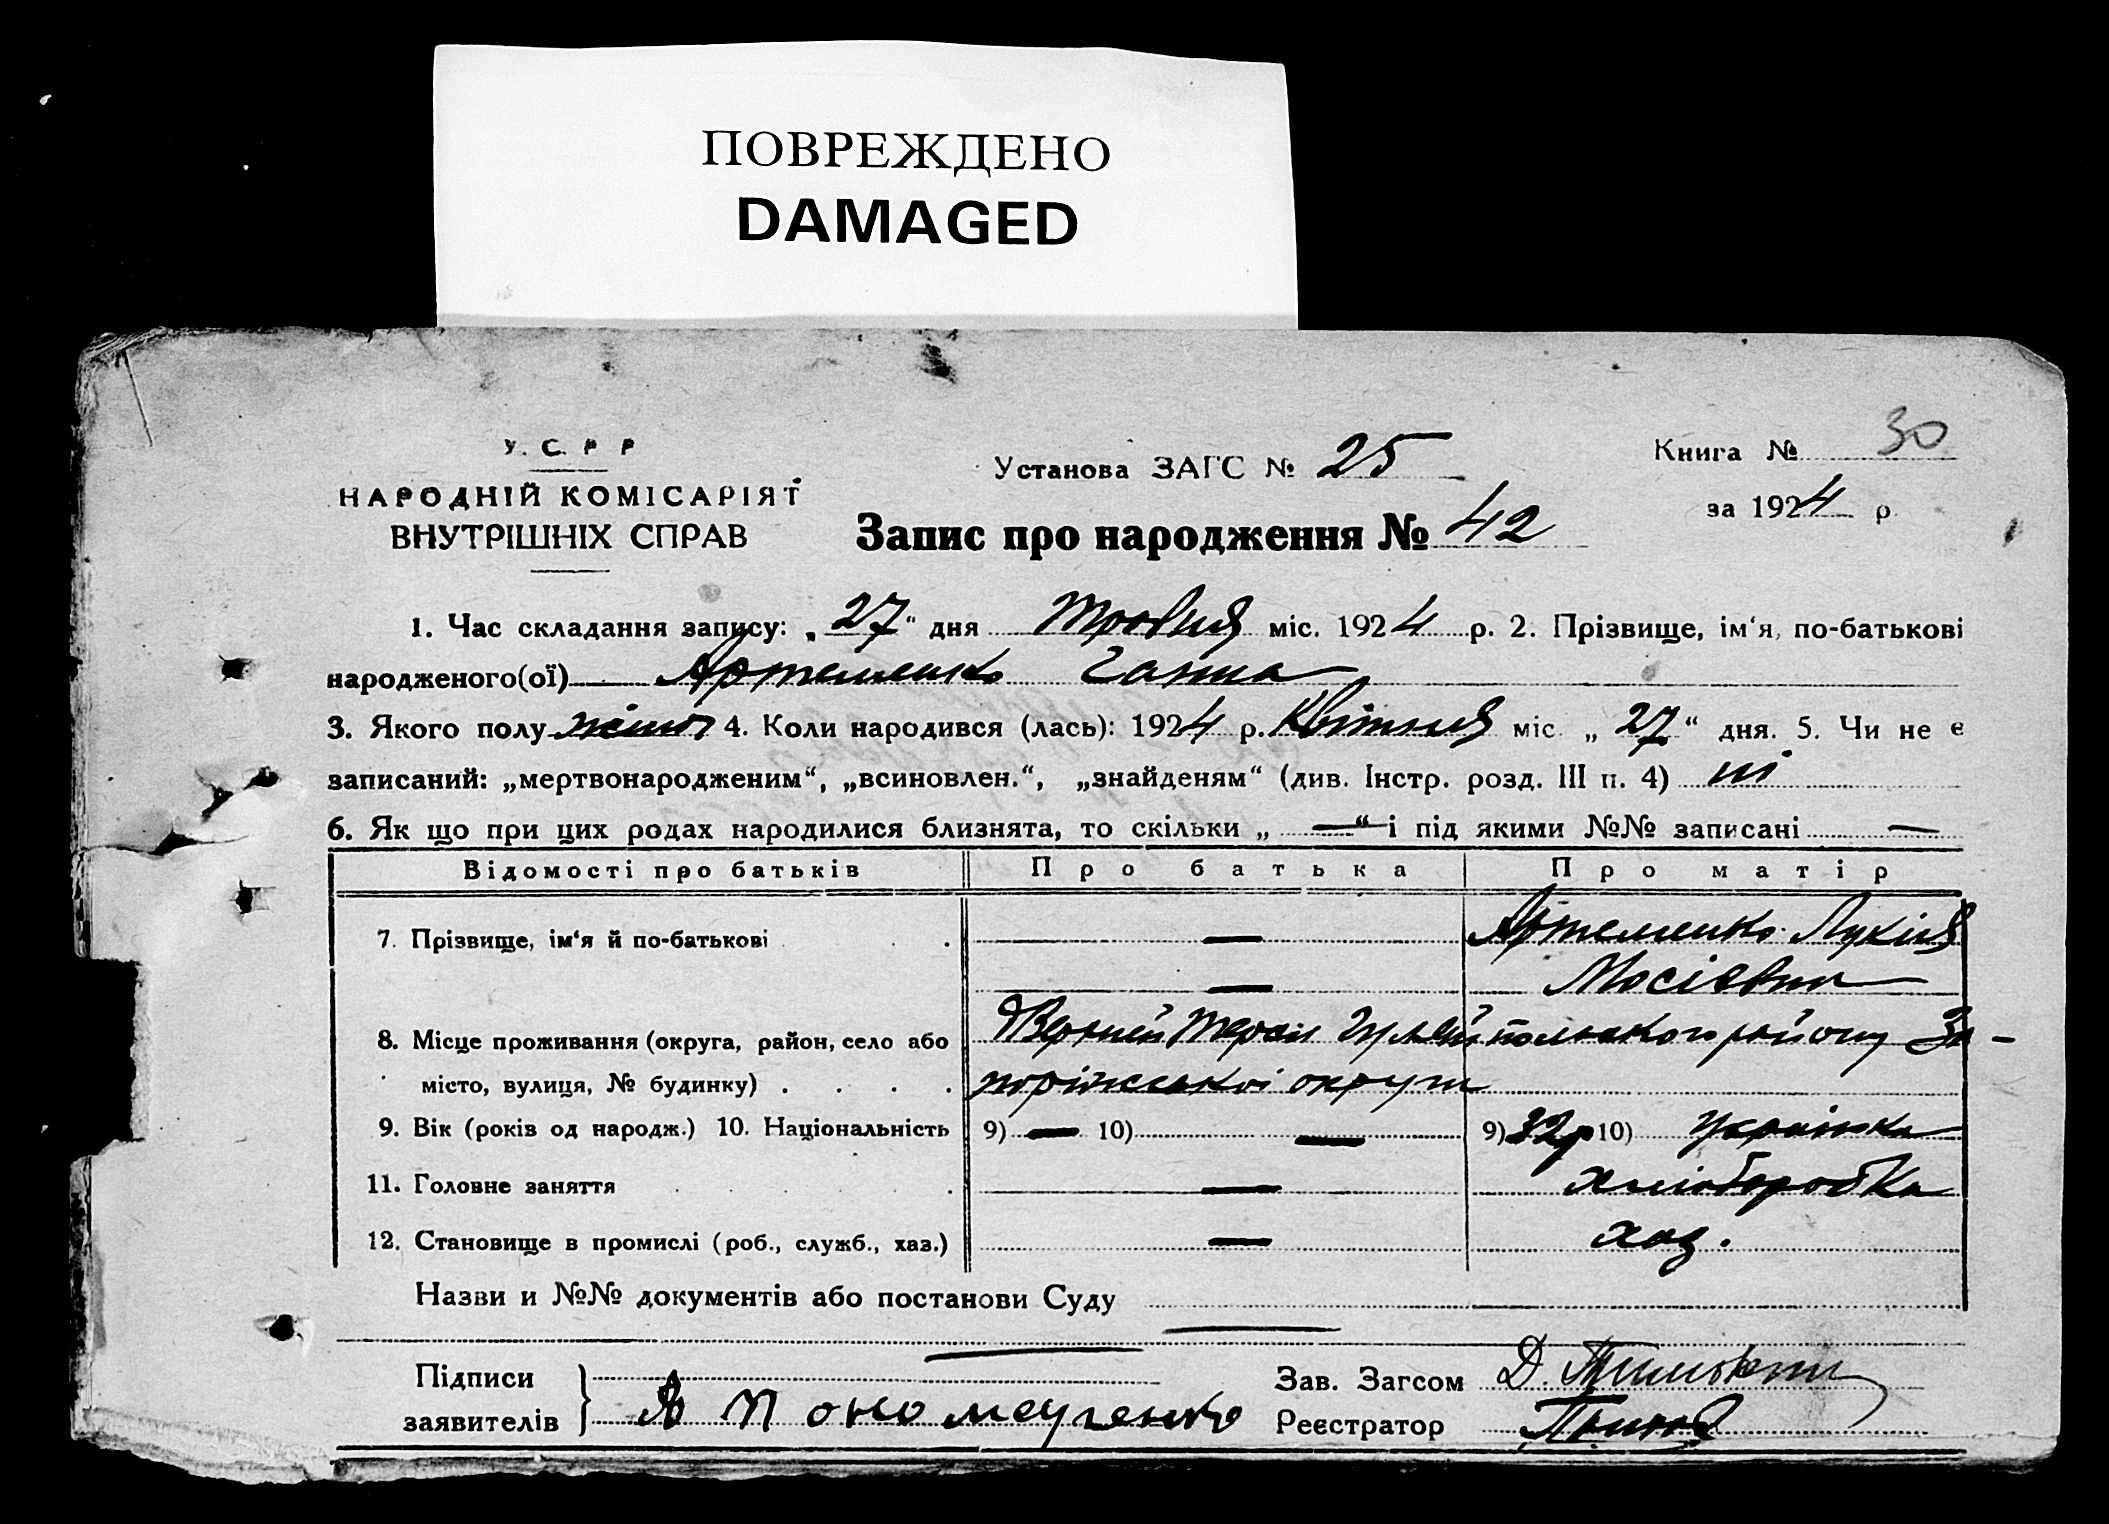 ПОВРЕЖДЕНО
DAMAGED
У. С. Р Р
НАРОДНІЙ КОМІСАРІЯТ
ВНУТРІШНІХ СПРАВ
Установа ЗАГС № 25
Запис про народження № 42
Книга № 30
за 1924 р
1. Час складання запису: „27“ дня Травня міс. 1924 р. 2. Прізвище, ім‘я, по-батькові
народженого(ої) Артеменко Ганна
3. Якого полу жіноч 4. Коли народився (лась): 1924 р. Квітня міс „27“ дня. 5. Чи не є
записаний: „мертвонародженим“, „всиновлен.“, „знайденям“ (див. Інстр. розд. III п. 4) ні
6. Як що при цих родах народилися близнята, то скільки „ — “ і під якими №№ записані —
Відомості про батьків Про батька Про матір
7. Прізвище, ім‘я й по-батькові . . — Артеменко Лукія
— Мосієвна
8. Місце проживання (округа, район, село або Верхній Терси Гуляйпольского району За-
місто, вулиця, № будинку) . . . . порізької округи
9. Вік (років од народж.) 10. Національність 9) — 10) — 9) 32р 10) Українка
11. Головне заняття . . . . — хліборобка
12. Становище в промислі (роб., служб., хаз.) — хаз.
Назви и №№ документів або постанови Суду —
—
Підписи
заявителів
Зав. Загсом Д.
Реєстратор